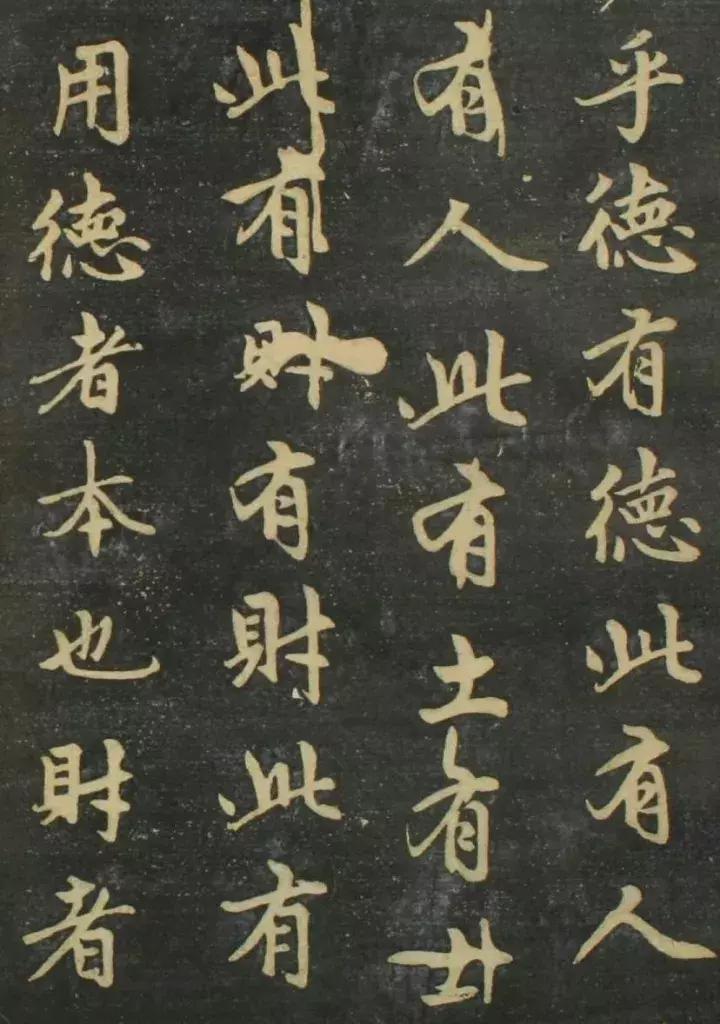 乎德有德此有人
有人此有土有土
此有財有財此有
用德者本也財者